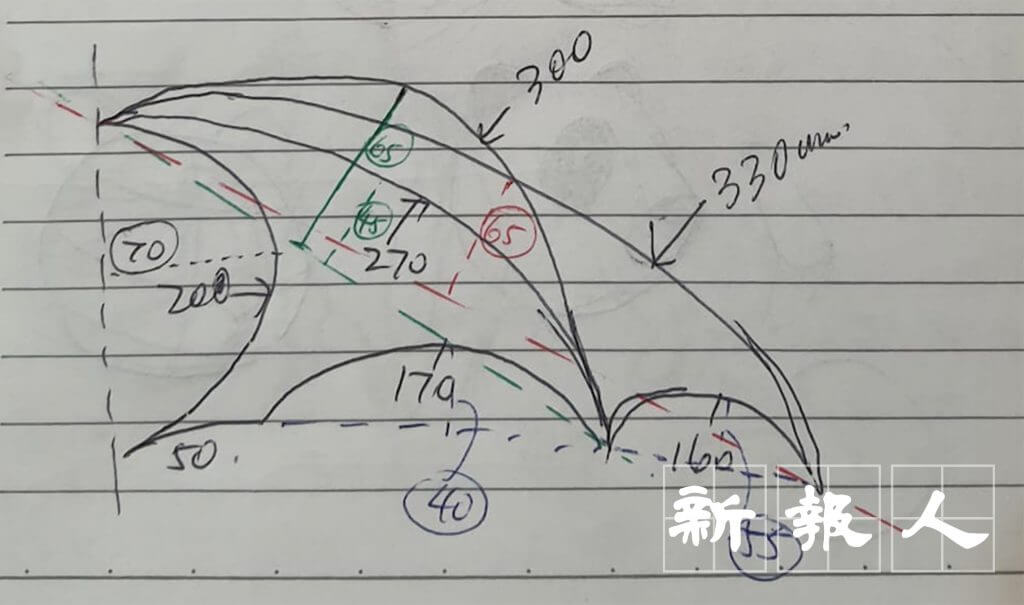 300
330mm.
65
45
65
70
270
200
170
50.
160
40
55
新報人